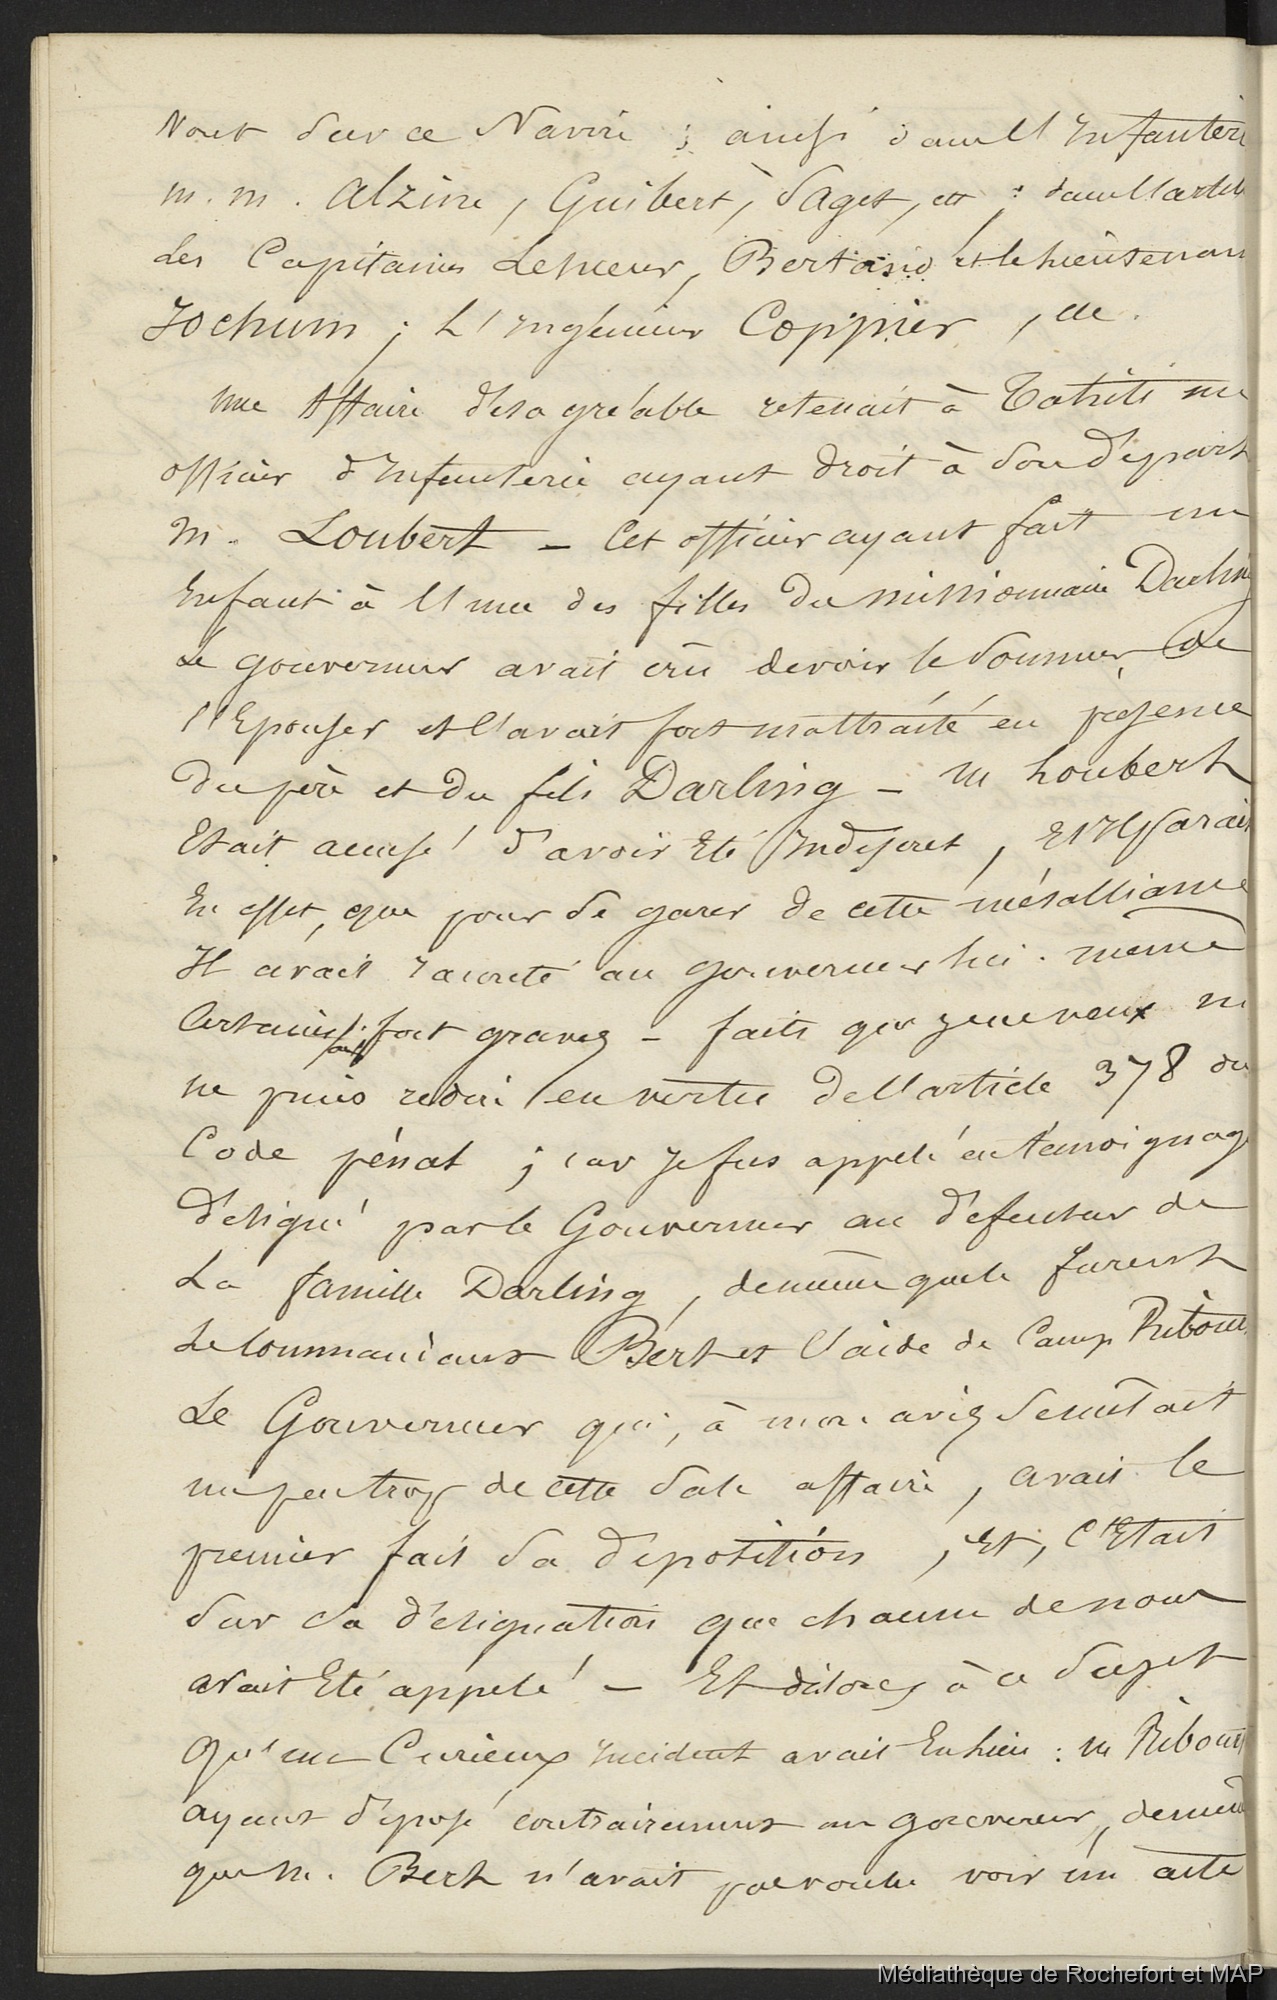 vont sur ce Navire ; ainsi dans l'Infanterie
m. m. Alzine, Guibert, Saget, ett ; dans l'artill
Les Capitaines Lehieur, Bertrand et le Lieutenan
Jochum ; L'Ingénieur Coppier, &c.
une Affaire désagréable retenait à Tahiti un
officier d'Infanterie ayant droit à son départ
M. Loubert — Cet officier ayant fait un
Enfant à l'une des filles du missionnaire Darling
Le gouverneur avait crû devoir le sommer de
l'Epouser et l'avait fort maltraité en présence
du père et du fils Darling — M Loubert
Etait accusé d'avoir Eté Indiscret,
En effet, que pour se garer de cette mésalliance
Il avait raconté au gouverneur lui-même
Certains faits fort graves — faits que je ne veux ni
ne puis redire en vertu de l'article 378 du
Code pénal ; car je fus appelé en témoignage
désigné par le Gouverneur au défenseur de
La famille Darling, de même que le furent
Le Commandant Bert et l'aide de Camp Ribourt
Le Gouverneur qui, à mon avis se mêlait
un peu trop de cette sale affaire, avait le
premier fait sa déposition, Et, c'Etait
sur sa désignation que chacun de nous
avait Eté appelé — Et disons à ce sujet
qu'un Curieux Incident avait Eu lieu : M Ribourt
ayant déposé contrairement au gouverneur, de même
que M. Bert n'avait pas voulu voir un acte
Médiathèque de Rochefort et MAP